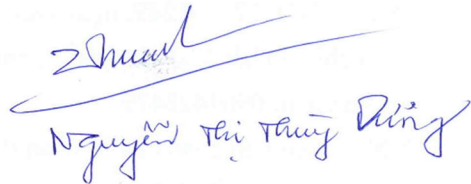 Nguyễn Thị Thùy Dương